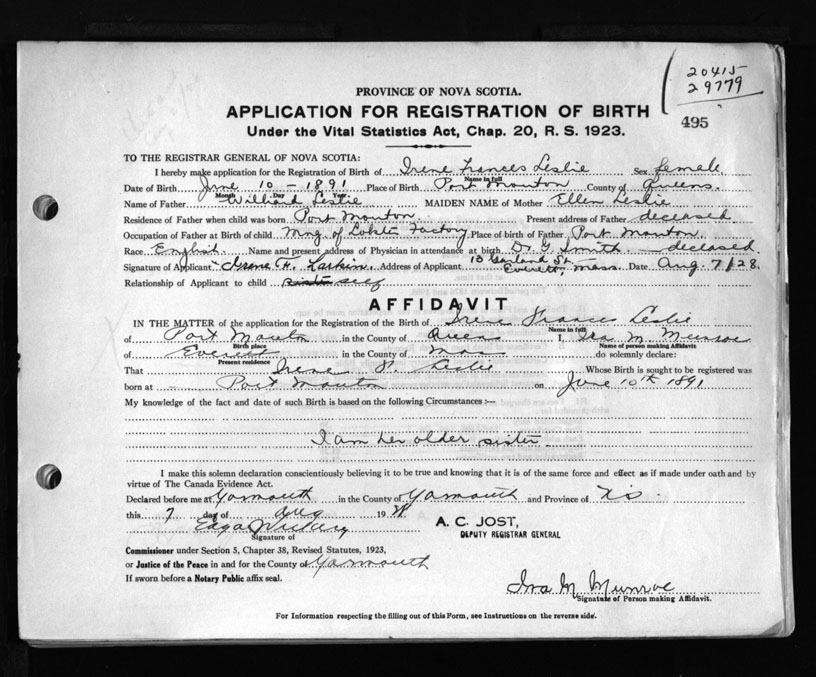 20415
29779
PROVINCE OF NOVA SCOTIA.
APPLICATION FOR REGISTRATION OF BIRTH
495
Under the Vital Statistics Act, Chap. 20, R. S. 1923.
TO THE REGISTRAR GENERAL OF NOVA SCOTIA:
I hereby make application for the Registration of Birth of Irene Frances Leslie Sex female
Name in full
Date of Birth June 10 - 1891 Place of Birth Port Mouton County of Queens.
Month Day Year
Name of Father Williard Leslie MAIDEN NAME of Mother Ellen Leslie
Residence of Father when child was born Port Mouton. Present address of Father deceased
Occupation of Father at Birth of child Mng of Lobster Factory Place of birth of Father Port Mouton.
Race English Name and present address of Physician in attendance at birth Dr. G. Smith. - deceased.
Signature of Applicant Irene F. Larkin. Address of Applicant 13 Garland St. Everett, Mass. Date Aug. 7/28.
Relationship of Applicant to child self
AFFIDAVIT
IN THE MATTER of the application for the Registration of the Birth of Irene Frances Leslie
Name in full
of Port Mouton in the County of Queens I, Ida M Munroe
Birth place Name of person making Affidavit
of Everett in the County of Mass do solemnly declare:
Present residence
That Irene F. Leslie Whose Birth is sought to be registered was
born at Port Mouton on June 10th 1891
My knowledge of the fact and date of such Birth is based on the following Circumstances :--
I am her older sister
I make this solemn declaration conscientiously believing it to be true and knowing that it is of the same force and effect as if made under oath and by
virtue of The Canada Evidence Act.
Declared before me at Yarmouth in the County of Yarmouth and Province of N.S.
this 7 day of Aug 19 28
Edgar
Signature of
A. C. JOST,
DEPUTY REGISTRAR GENERAL
Commissioner under Section 5, Chapter 38, Revised Statutes, 1923,
or Justice of the Peace in and for the County of Yarmouth
If sworn before a Notary Public affix seal.
Ida M Munroe
Signature of Person making Affidavit.
For Information respecting the filling out of this Form, see Instructions on the reverse side.